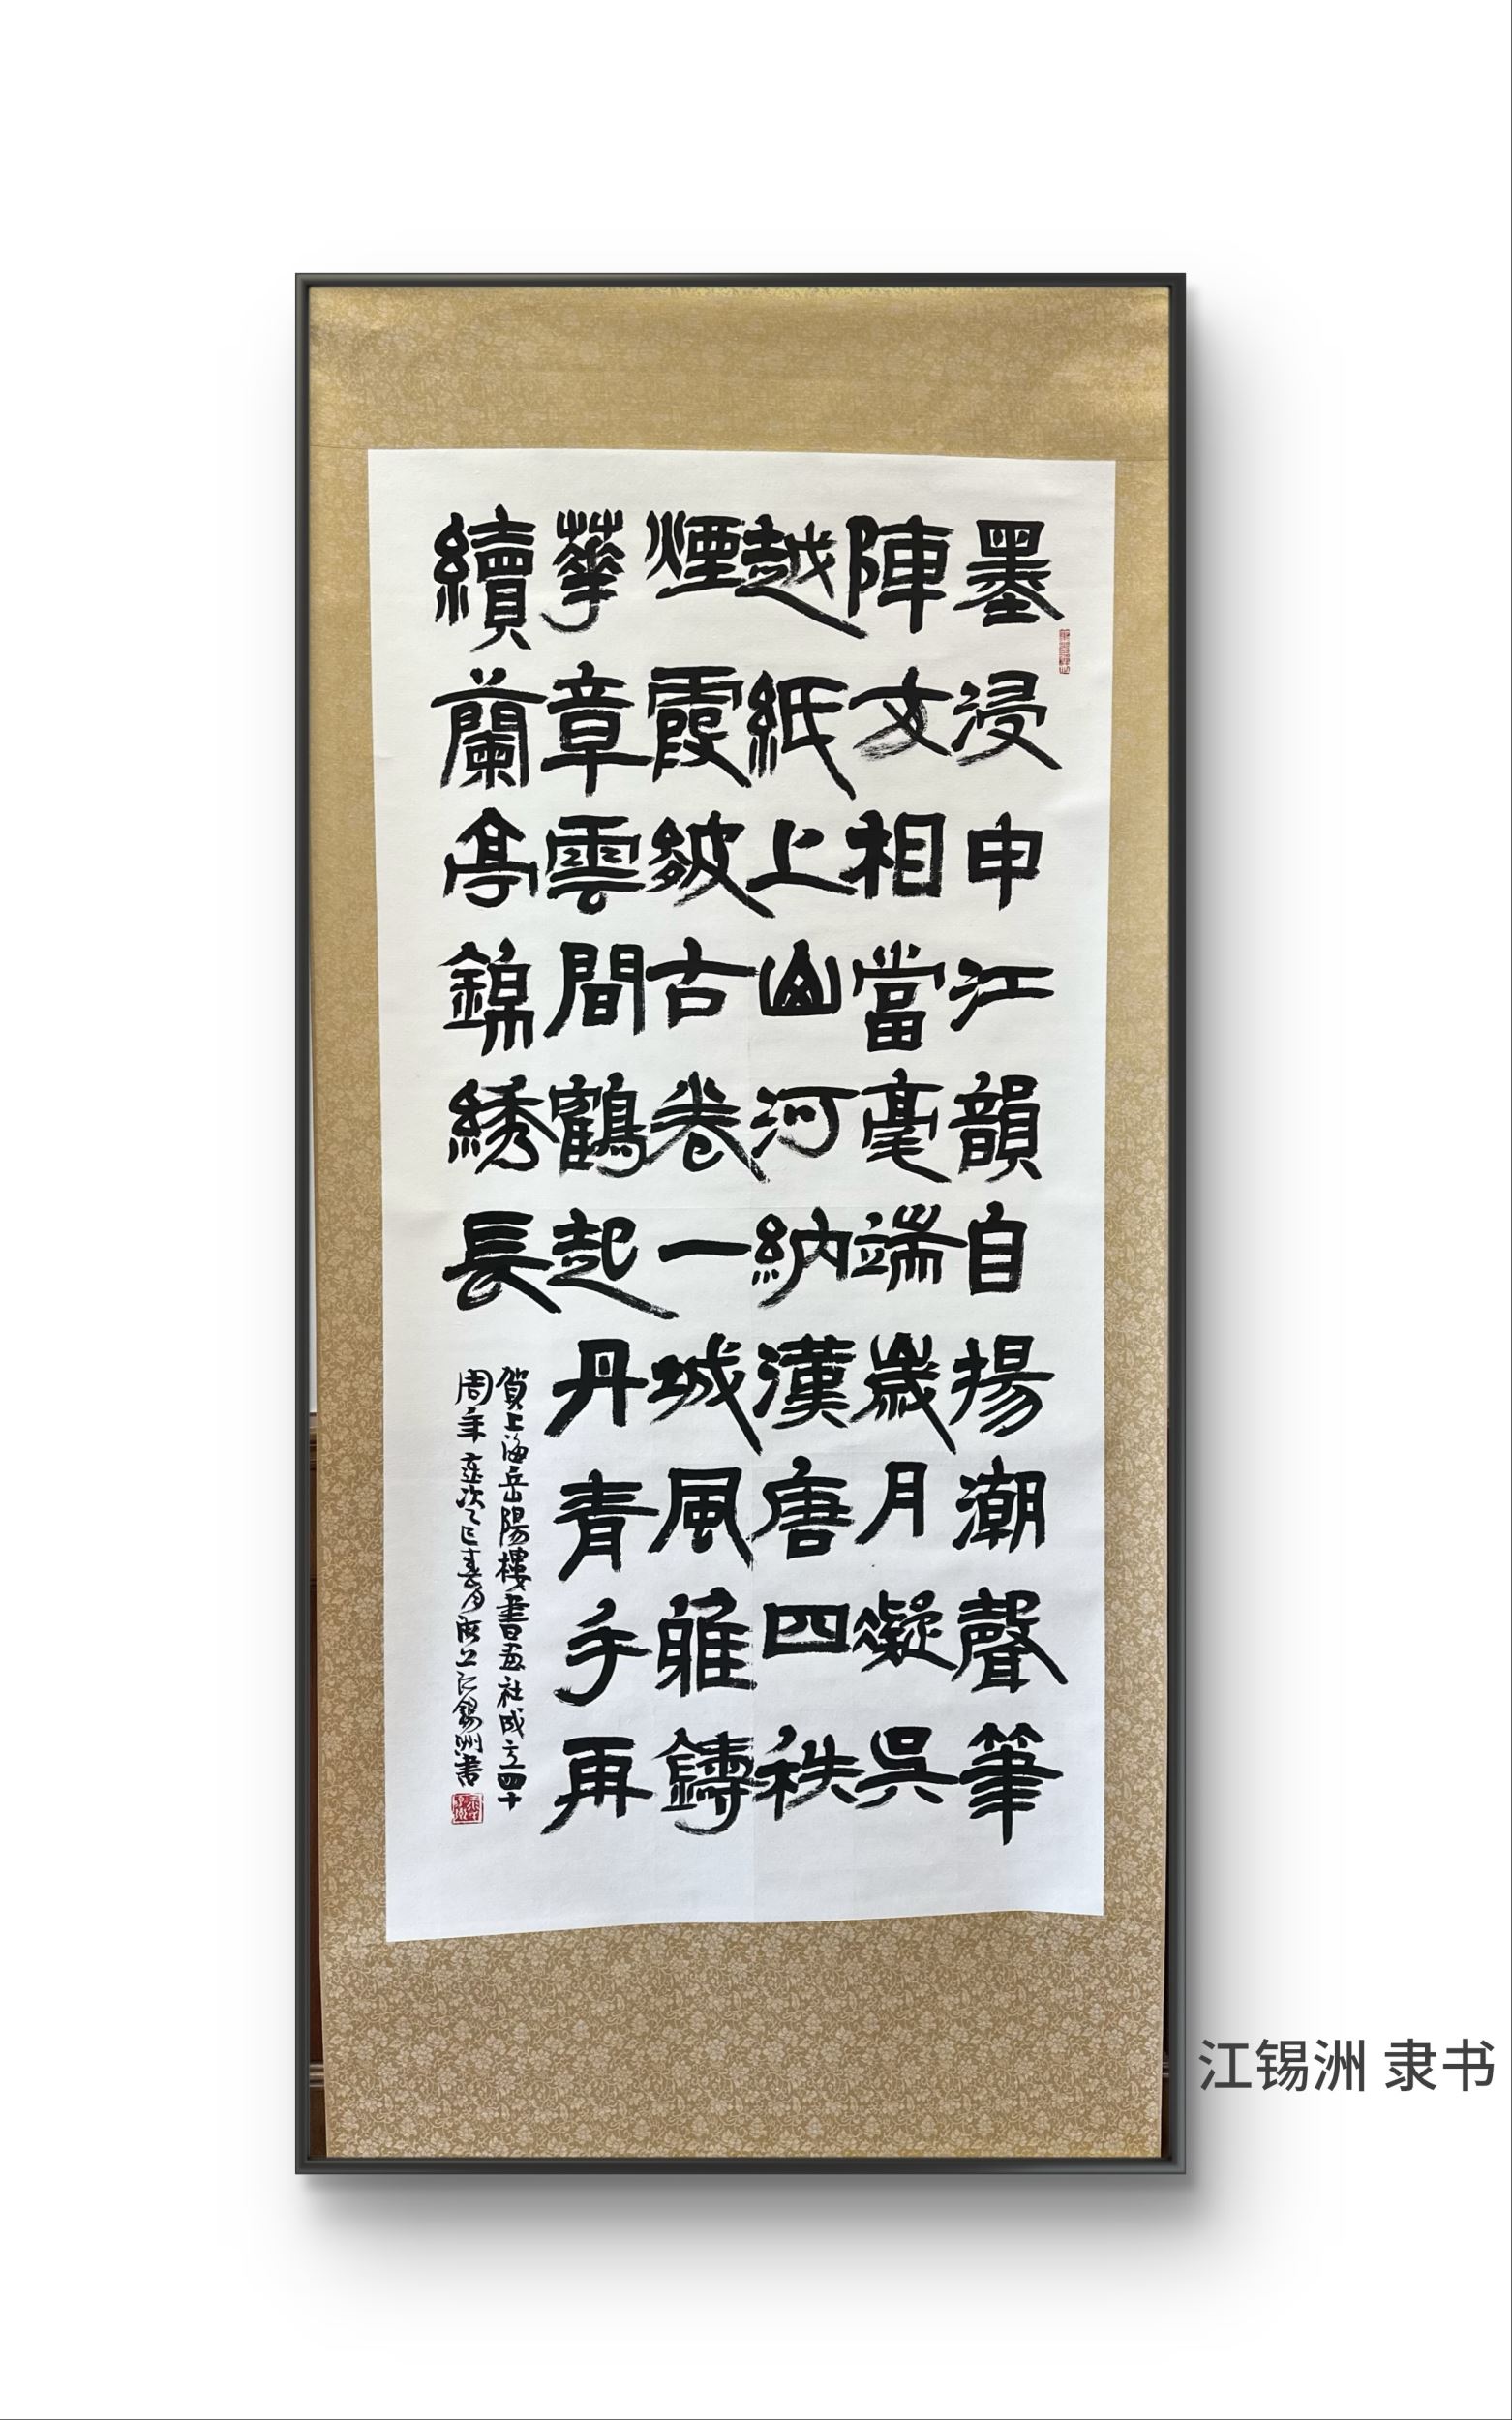 墨浸申江韻自揚潮聲筆
陣文相當毫端歲月凝吳
越紙上山河納漢唐四秩
煙霞皴古卷一城風雅鑄
華章雲間鶴起丹青手再
續蘭亭錦綉長
賀上海岳陽樓書画社成立四十
周年歲次乙巳春月海上江錫洲書
江锡洲 隶书